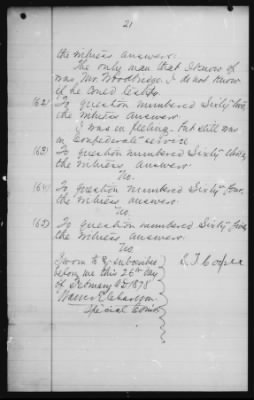 21
the witness answers:
The only man that I know of
was Mr. Woodbridge. I do not know
if he could testify.
(62) To question numbered Sixty two,
the witness answers:
I was in feeling. but still was
in Confederate service
(63) To question numbered Sixty three,
the witness answers:
No.
(64) To question numbered Sixty four,
the witness answers:
No.
(65) To question numbered Sixty five,
the witness answers:
No
Sworn to & subscribed
before me this 26th day
of February AD 1878
Special Comr